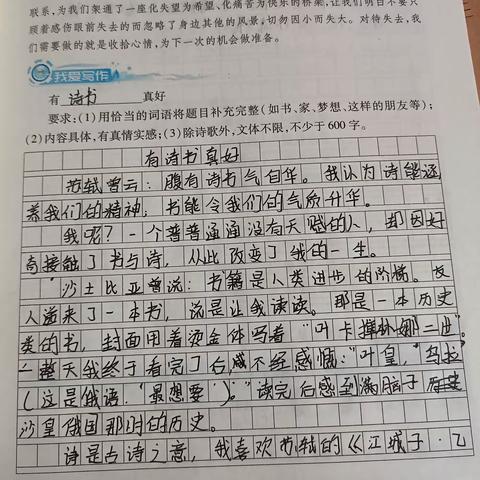 联系，为我们架通了一座化失望为希望、化痛苦为快乐的桥梁，让我们明白不要只
顾着感伤眼前失去的而忽略了身边其他的风景，切勿因小而失大。对待失去，我
们需要做的就是收拾心情，为下一次的机会做准备。
我爱写作
有 诗书 真好
要求：(1)用恰当的词语将题目补充完整(如书、家、梦想、这样的朋友等)；
(2)内容具体，有真情实感；(3)除诗歌外，文体不限，不少于600字。
有诗书真好
苏轼曾云：腹有诗书气自华。我认为诗能滋
养我们的精神，书能令我们的气质升华。
我呢？一个普普通通没有天赋的人，却因好
奇接触了书与诗，从此改变了我的一生。
沙士比亚曾说：书籍是人类进步的阶梯。友
人送来了一本书，说是让我读读。那是一本历史
类的书，封面用着烫金体写着“叶卡捷林娜二世”。
一整天我终于看完了后，感不经感慨：“叶皇，‘乌拉’
(这是俄语，‘最想要’)。”读完后感到满脑子
沙皇俄国那时的历史。
诗是古诗之意，我喜欢苏轼的《江城子·乙